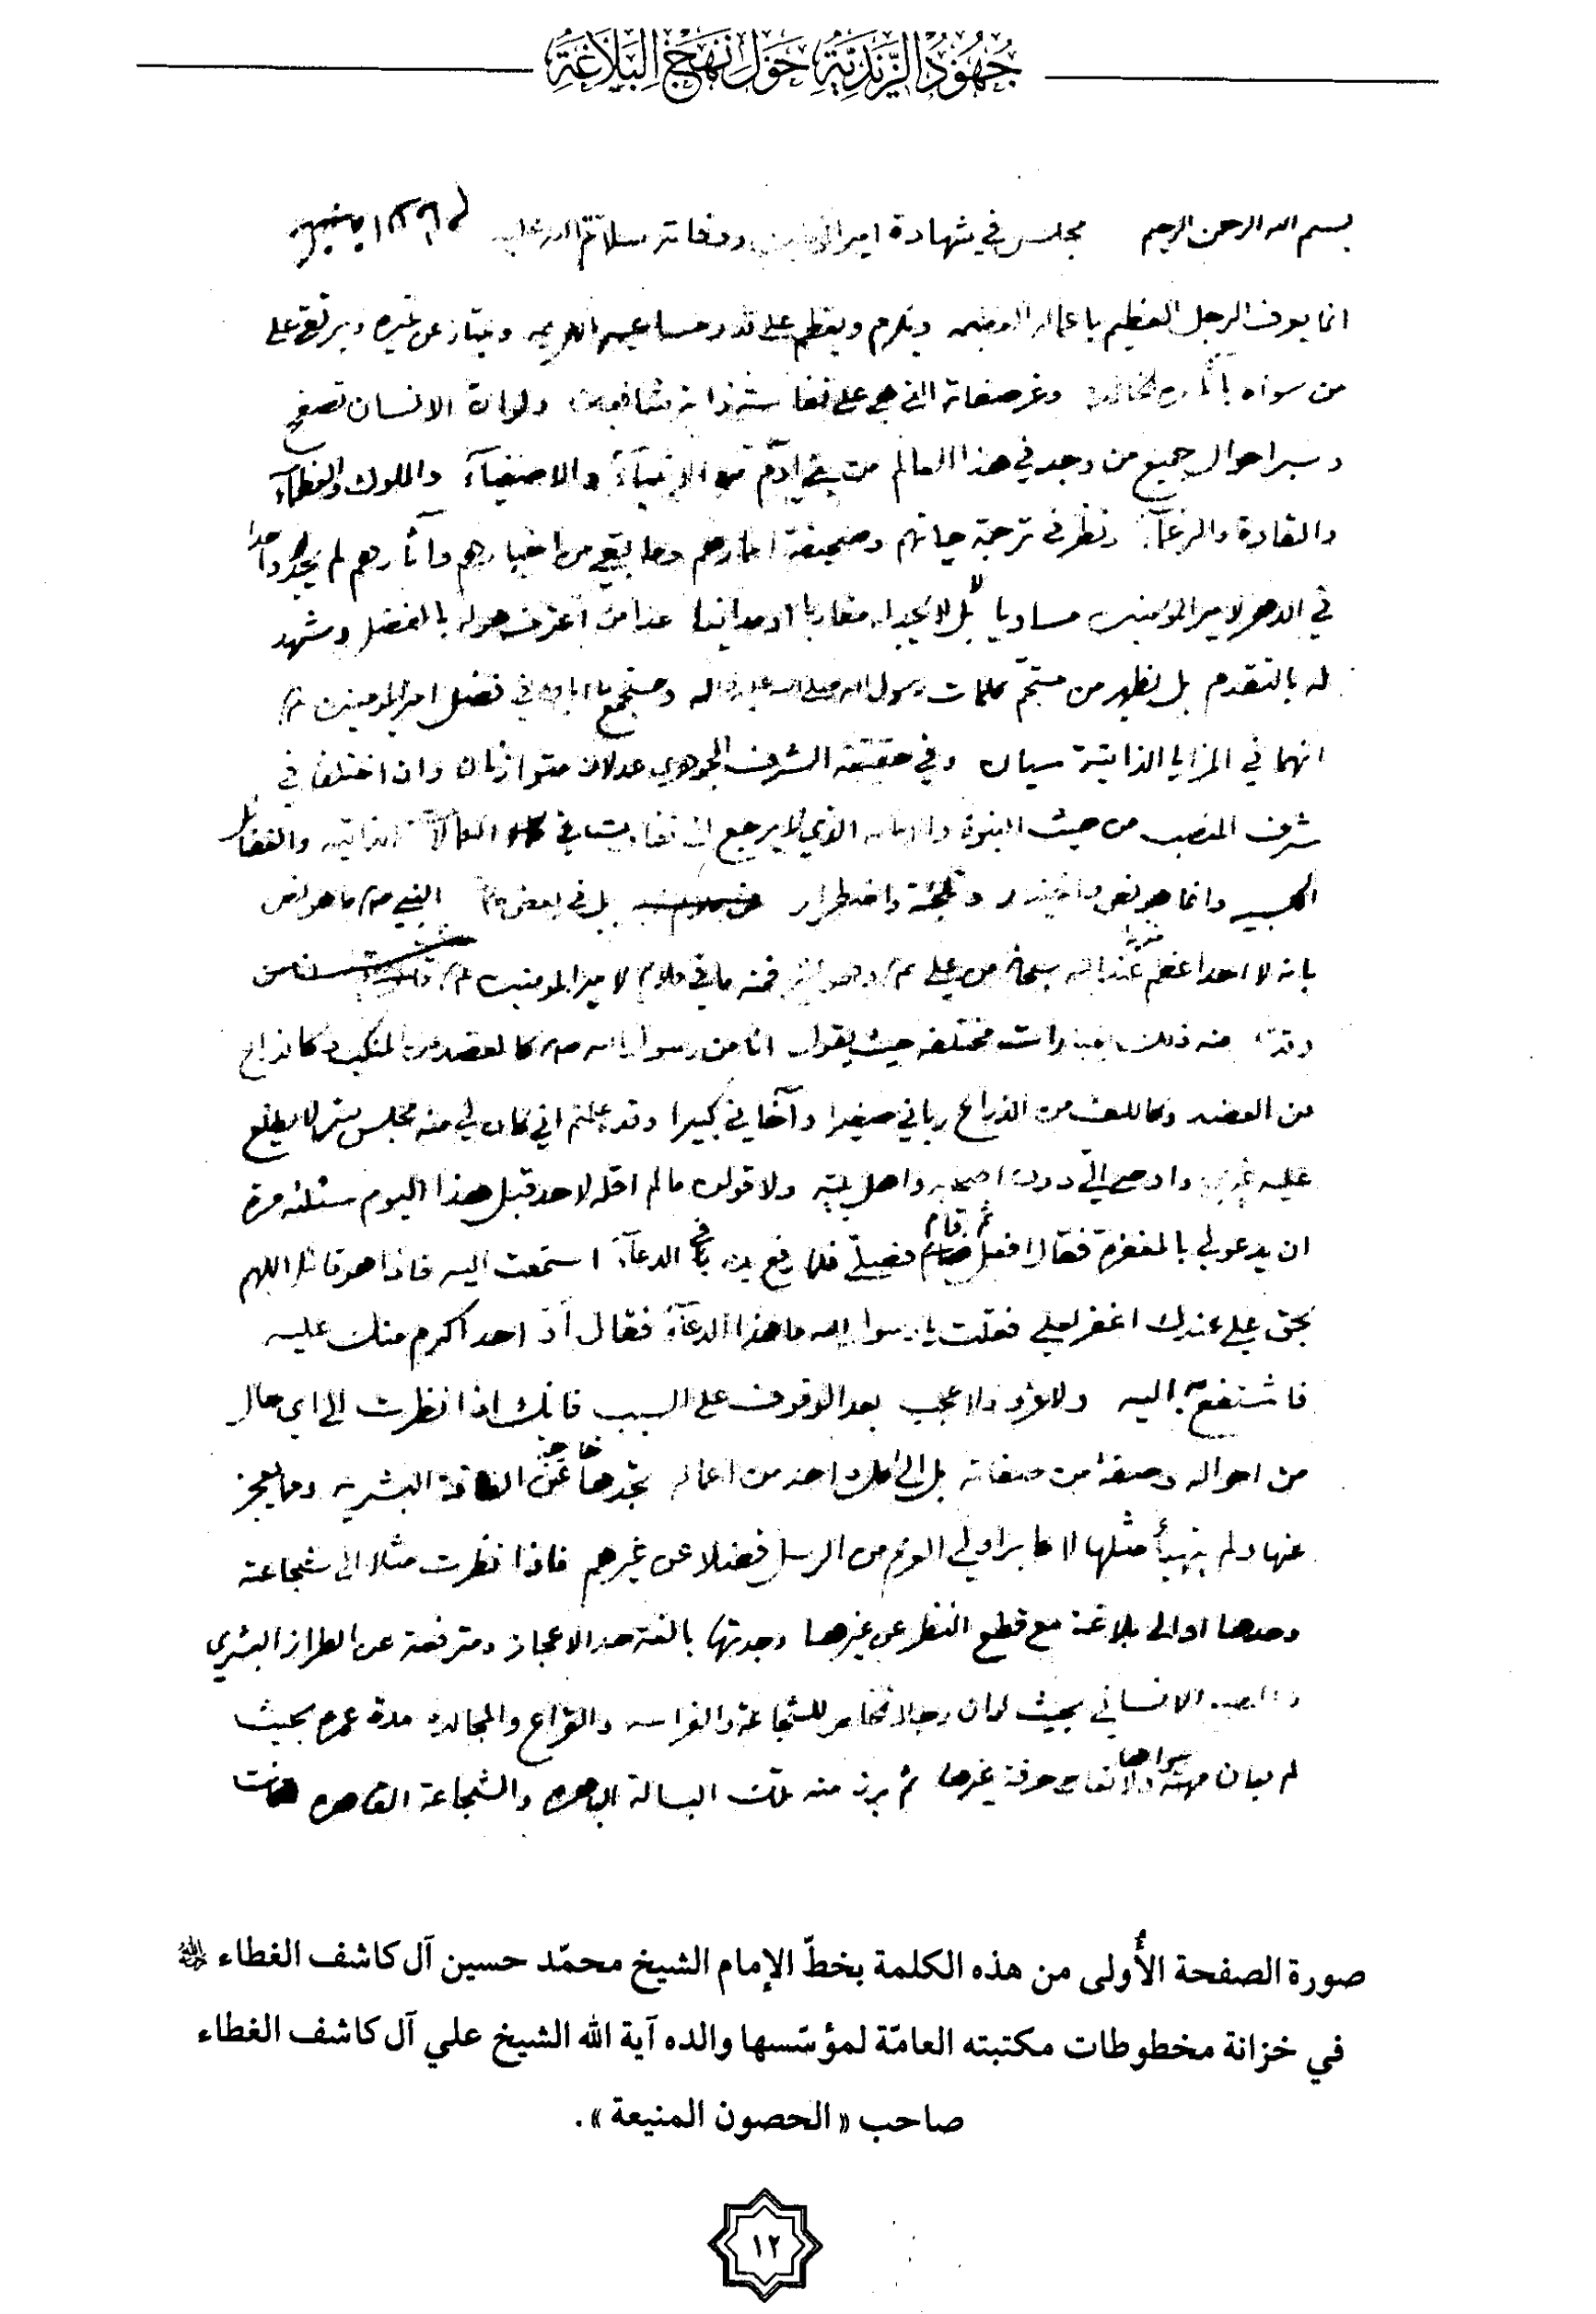 جُهُودُ الزَّنْدِيَّةِ حَوْلَ نَهْجِ الْبَلَاغَةِ
بسم الله الرحمن الرحيم مجلس في شهادة امير ووفاته سلام الله عليه
انما يعرف الرجل العظيم باعماله ويكرم ويعظم على قدر مساعيه ويمتاز عن غيره ويرتفع على
من سواه وغر صفاته التي هي على نفاسة ذاته ولو ان الانسان تصفح
وسبر احوال جميع من وجد في هذا العالم من بني آدم من الانبيآء والاصفيآء والملوك والعظمآء
والقادة والزعمآء ونظر في ترجمة حياتهم وصحيفة وما بقي من اخبارهم وآثارهم لم يجد واحدا
في الدهر لامير المؤمنين مساويا بل لا يجد له مقاربا او مدانيا عدا من اعترف هو له بالفضل وشهد
له بالتقدم بل يظهر من كلمات رسول الله صلى الله عليه واله في فضل امير المؤمنين
انهما في المزايا الذاتية سيان وفي حقيقة الشرف الجوهري عدلان متوازنان وان اختلفا في
شرف المنصب من حيث النبوة والامامة الذي لا يرجع الى تفاوت في الكمالات الذاتية والفضائل
وانما هو واضطرار بل في بعض النبي ما هو نص
بانه لا احد اعظم منزلة عند الله سبحانه من علي لامير المؤمنين
منه ذلك بعبارات مختلفة حيث يقول انا من رسول الله كالعضد من المنكب وكالذراع
من العضد وكالكف من الذراع رباني صغيرا وآخاني كبيرا وقد علمتم اني كان لي منه مجلس سر لا يطلع
عليه غيري واوصى الي دون اصحابه واهل بيته ولاقولن ما لم اقله لاحد قبل هذا اليوم سئلته مرة
ان يدعو لي بالمغفرة فقال افعل ثم قام فصلى فلما رفع يده بالدعآء استمعت اليه فاذا هو قائل اللهم
بحق علي عندك اغفر لعلي فقلت يا رسول الله ما هذا الدعآء فقال أو احد اكرم منك عليه
فاستشفع به اليه ولا غرو ولا عجب بعد الوقوف على السبب فانك اذا نظرت الى اي حال
من احواله وصفة من صفاته بل الى كل واحد من اعماله تجدها خارجة عن الطاقة البشرية ومما يعجز
عنها ولم يتهيأ مثلها لاكابر اولي العزم من الرسل فضلا عن غيرهم فاذا نظرت مثلا الى شجاعته
وحدها او الى بلاغته مع قطع النظر عن غيرها وجدتها بالغة حد الاعجاز ومترفعة عن الطراز البشري
الانساني بحيث لو ان رجلا للشجاعة والفراسة والقراع والمجالدة مدة عمره بحيث
لم يعان مهنة سواها ولا حرفة غيرها ثم برز منه تلك البسالة الباهرة والشجاعة القاهرة لكانت
صورة الصفحة الأُولى من هذه الكلمة بخطّ الإمام الشيخ محمّد حسين آل كاشف الغطاء
في خزانة مخطوطات مكتبته العامّة لمؤسّسها والده آية الله الشيخ علي آل كاشف الغطاء
صاحب « الحصون المنيعة ».
١٢